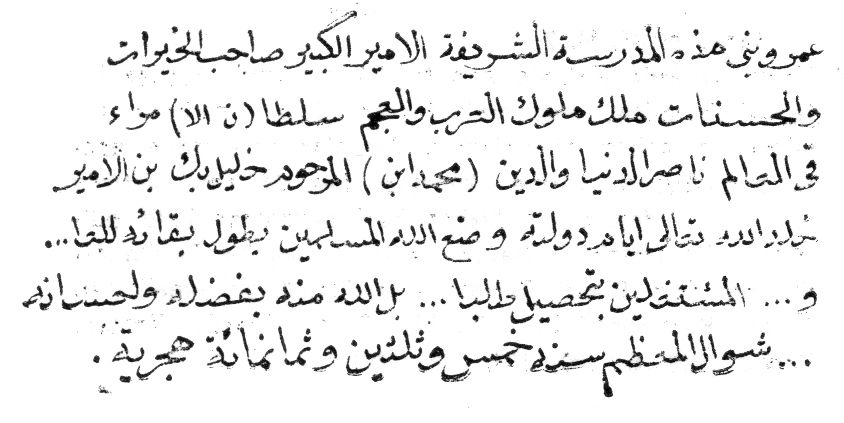 عمر وبنى هذه المدرسة الشريفة الامير الكبير صاحب الخيرات
والحسنات ملك ملوك العرب والعجم سلطا (ن الا) مراء
فى العالم ناصر الدنيا والدين (محمد ابن) المرحوم خليل بك بن الامير
خلد الله تعالى ايام دولته و متع الله المسلمين بطول بقائه للعا...
و... المشتغلين بتحصيل طلبا... بل الله منه بفضله واحسانه
... شوال المعظم سنه خمس وثلثين وثمانمائة هجرية .